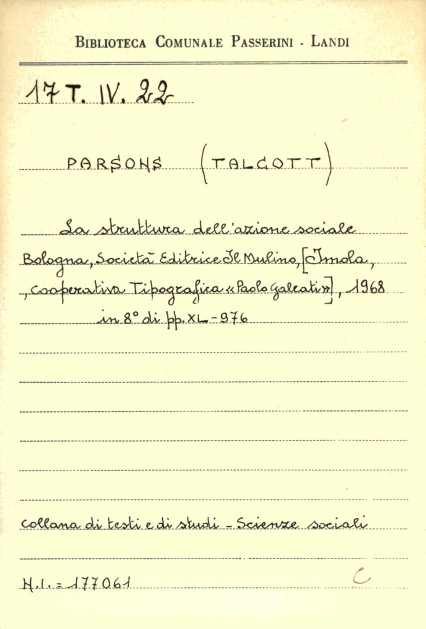 BIBLIOTECA COMUNALE PASSERINI - LANDI
17 T. IV. 22
PARSONS (TALCOTT)
La struttura dell'azione sociale
Bologna, Società Editrice Il Mulino, [Imola,
, Cooperativa Tipografica «Paolo Galeati»], 1968
in 8° di pp. XL - 976
Collana di testi e di studi - Scienze sociali
N.I. = 177061 C